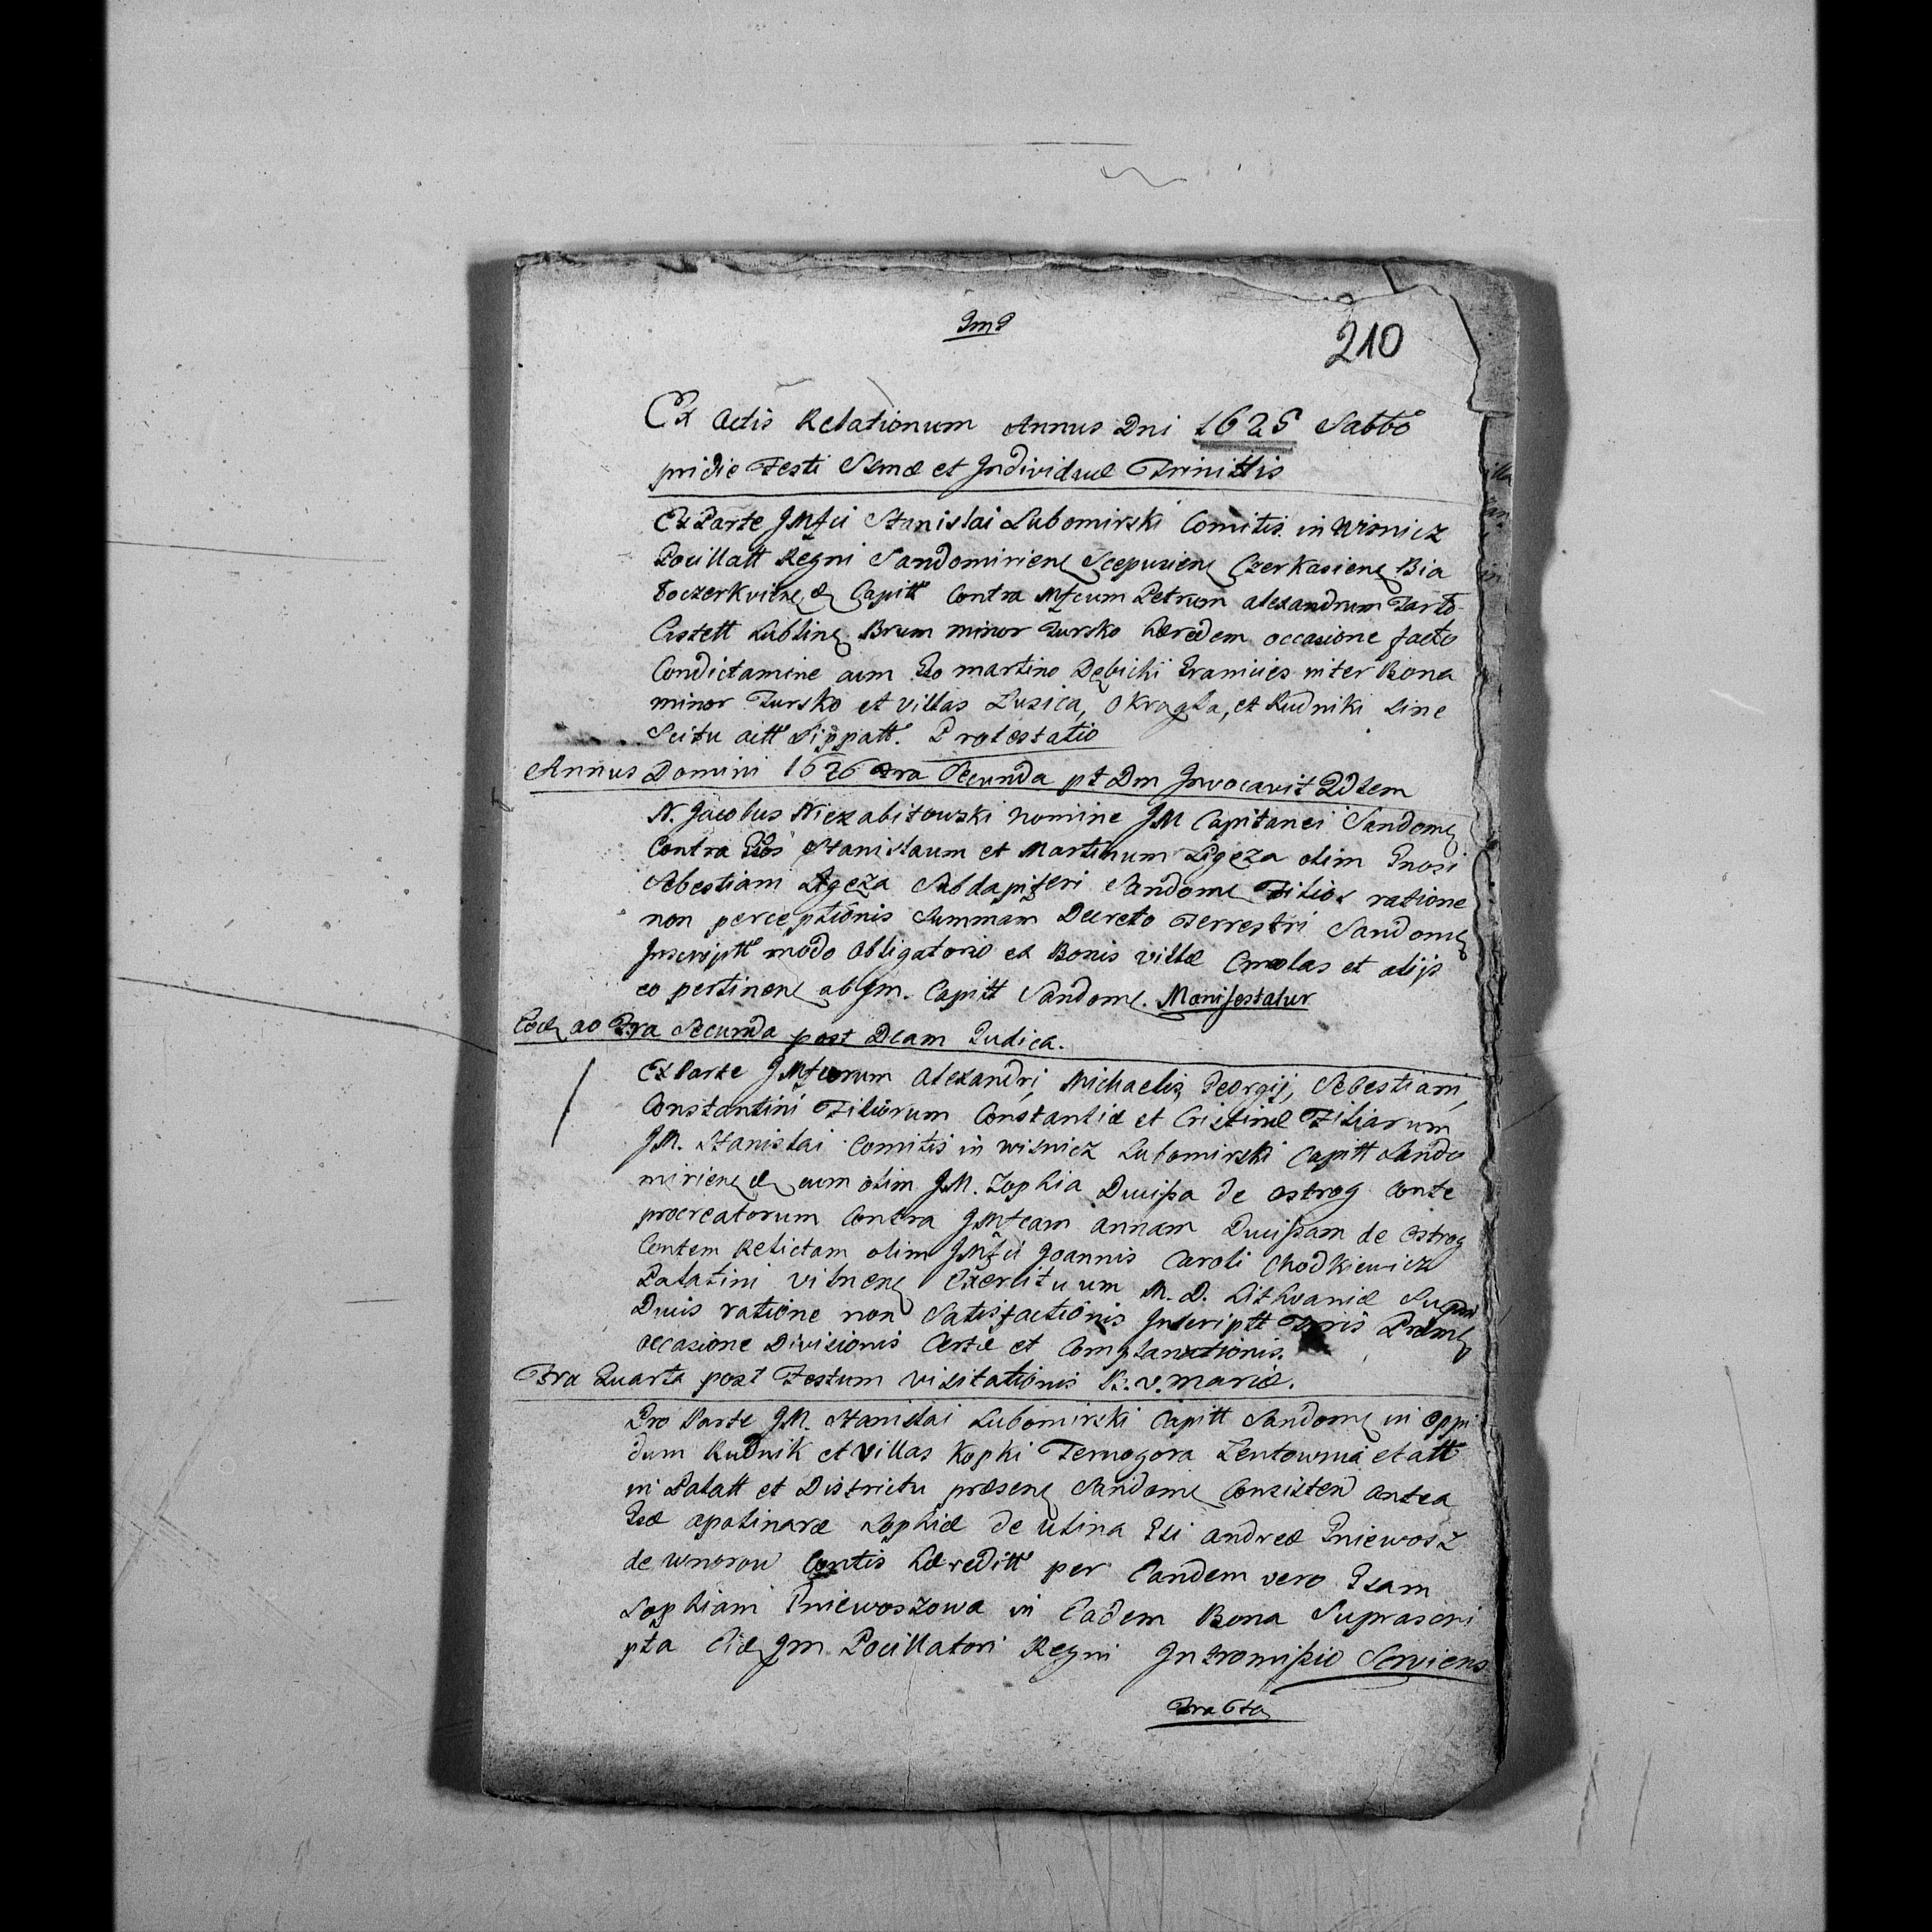 JmJ
210
Ex Actis Relationum Annus Dni 1625 Sabbo
pridie Festi SSmæ et Individuæ Trinittis
Ex Parte JMfci Stanislai Lubomirski Comitis in Wisnicz
Pocillatt Regni Sandomirien Scepusien Czerkasien Bia
Łoczerkvien & Capitt Contra Mfcum Petrum Alexandrum Tarło
Castell Lublin Brum minor Tursko hæredem occasione facto
Condictamine cum Gso Martino Dębicki Granicies inter Bona
minor Tursko et villas Luzica, Okrągła, et Rudniki sine
Scitu aitt Sippatt. Protestatio
Annus Domini 1626 Fra Secunda pt Dm Invocavit Qdlem
N. Jacobus Niezabitowski nomine JM Capitanei Sandom
Contra Gsos Stanislaum et Martinum Ligęza olim Gnosi
Sebestiani Ligęza Subdapiferi Sandom Filios ratione
non perceptionis Summam Decreto Terrestri Sandom
Inscriptt modo obligatorio ex Bonis villæ Cmolas et alijs
eo pertinen ab Jm. Capitt Sandom. Manifestatur
Eod ao Fra Secunda post Dcam Judica.
Ex Parte JMfcorum Alexandri, Michaelis, Georgij, Sebestiani,
Constantini Filiorum Constantiæ et Cristinæ Filiarum
JM. Stanislai Comitis in Wisnicz Lubomirski Capitt Sando
mirien & cum olim JM. Zophia Ducissa de Ostrog Conte
procreatorum Contra JMfcam Annam Ducissam de Ostrog
Contem Relictam olim JMfci Joannis Caroli Chodkiewicz
Palatini Vilnen Exercituum M. D. Lithvaniæ Supmi
Ducis ratione non Satisfactionis Inscriptt Fris Præm
occasione Divisionis Certæ et Complanationis.
Fra Quarta post Festum Visitationis B. V. Mariæ.
Pro Parte JM. Stanislai Lubomirski Capitt Sandom in Oppi
dum Rudnik et Villas Kopki Ternogora Lentownia et att
in Palatt et Districtu præsen Sandom Consisten antea
Gsæ Apolinaræ Zophiæ de Ulina Gsi Andreæ Gniewosz
de Wnorow Contis hæreditt per Eandem vero Gsam
Zophiam Gniewoszowa in Eadem Bona Suprascri
pta Eid Jm Pocillatori Regni Intromissio Serviens
Fra 6ta